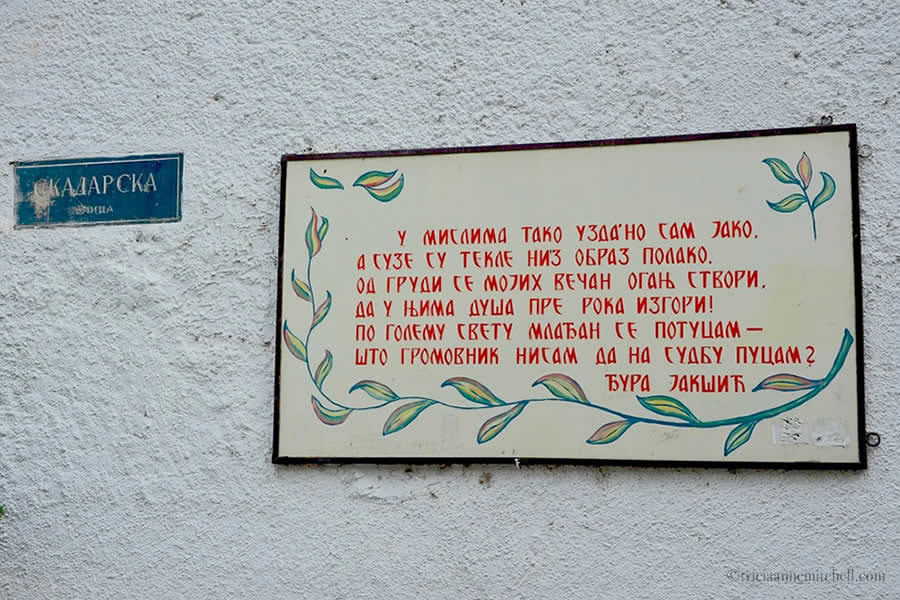 СКАДАРСКА
УЛИЦА
У МИСЛИМА ТАКО УЗДА'НО САМ ЈАКО,
А СУЗЕ СУ ТЕКЛЕ НИЗ ОБРАЗ ПОЛАКО.
ОД ГРУДИ СЕ МОЈИХ ВЕЧАН ОГАЊ СТВОРИ,
ДА У ЊИМА ДУША ПРЕ РОКА ИЗГОРИ!
ПО ГОЛЕМУ СВЕТУ МЛАЂАН СЕ ПОТУЦАМ —
ШТО ГРОМОВНИК НИСАМ ДА НА СУДБУ ПУЦАМ?
ЂУРА ЈАКШИЋ
©triciaannemitchell.com